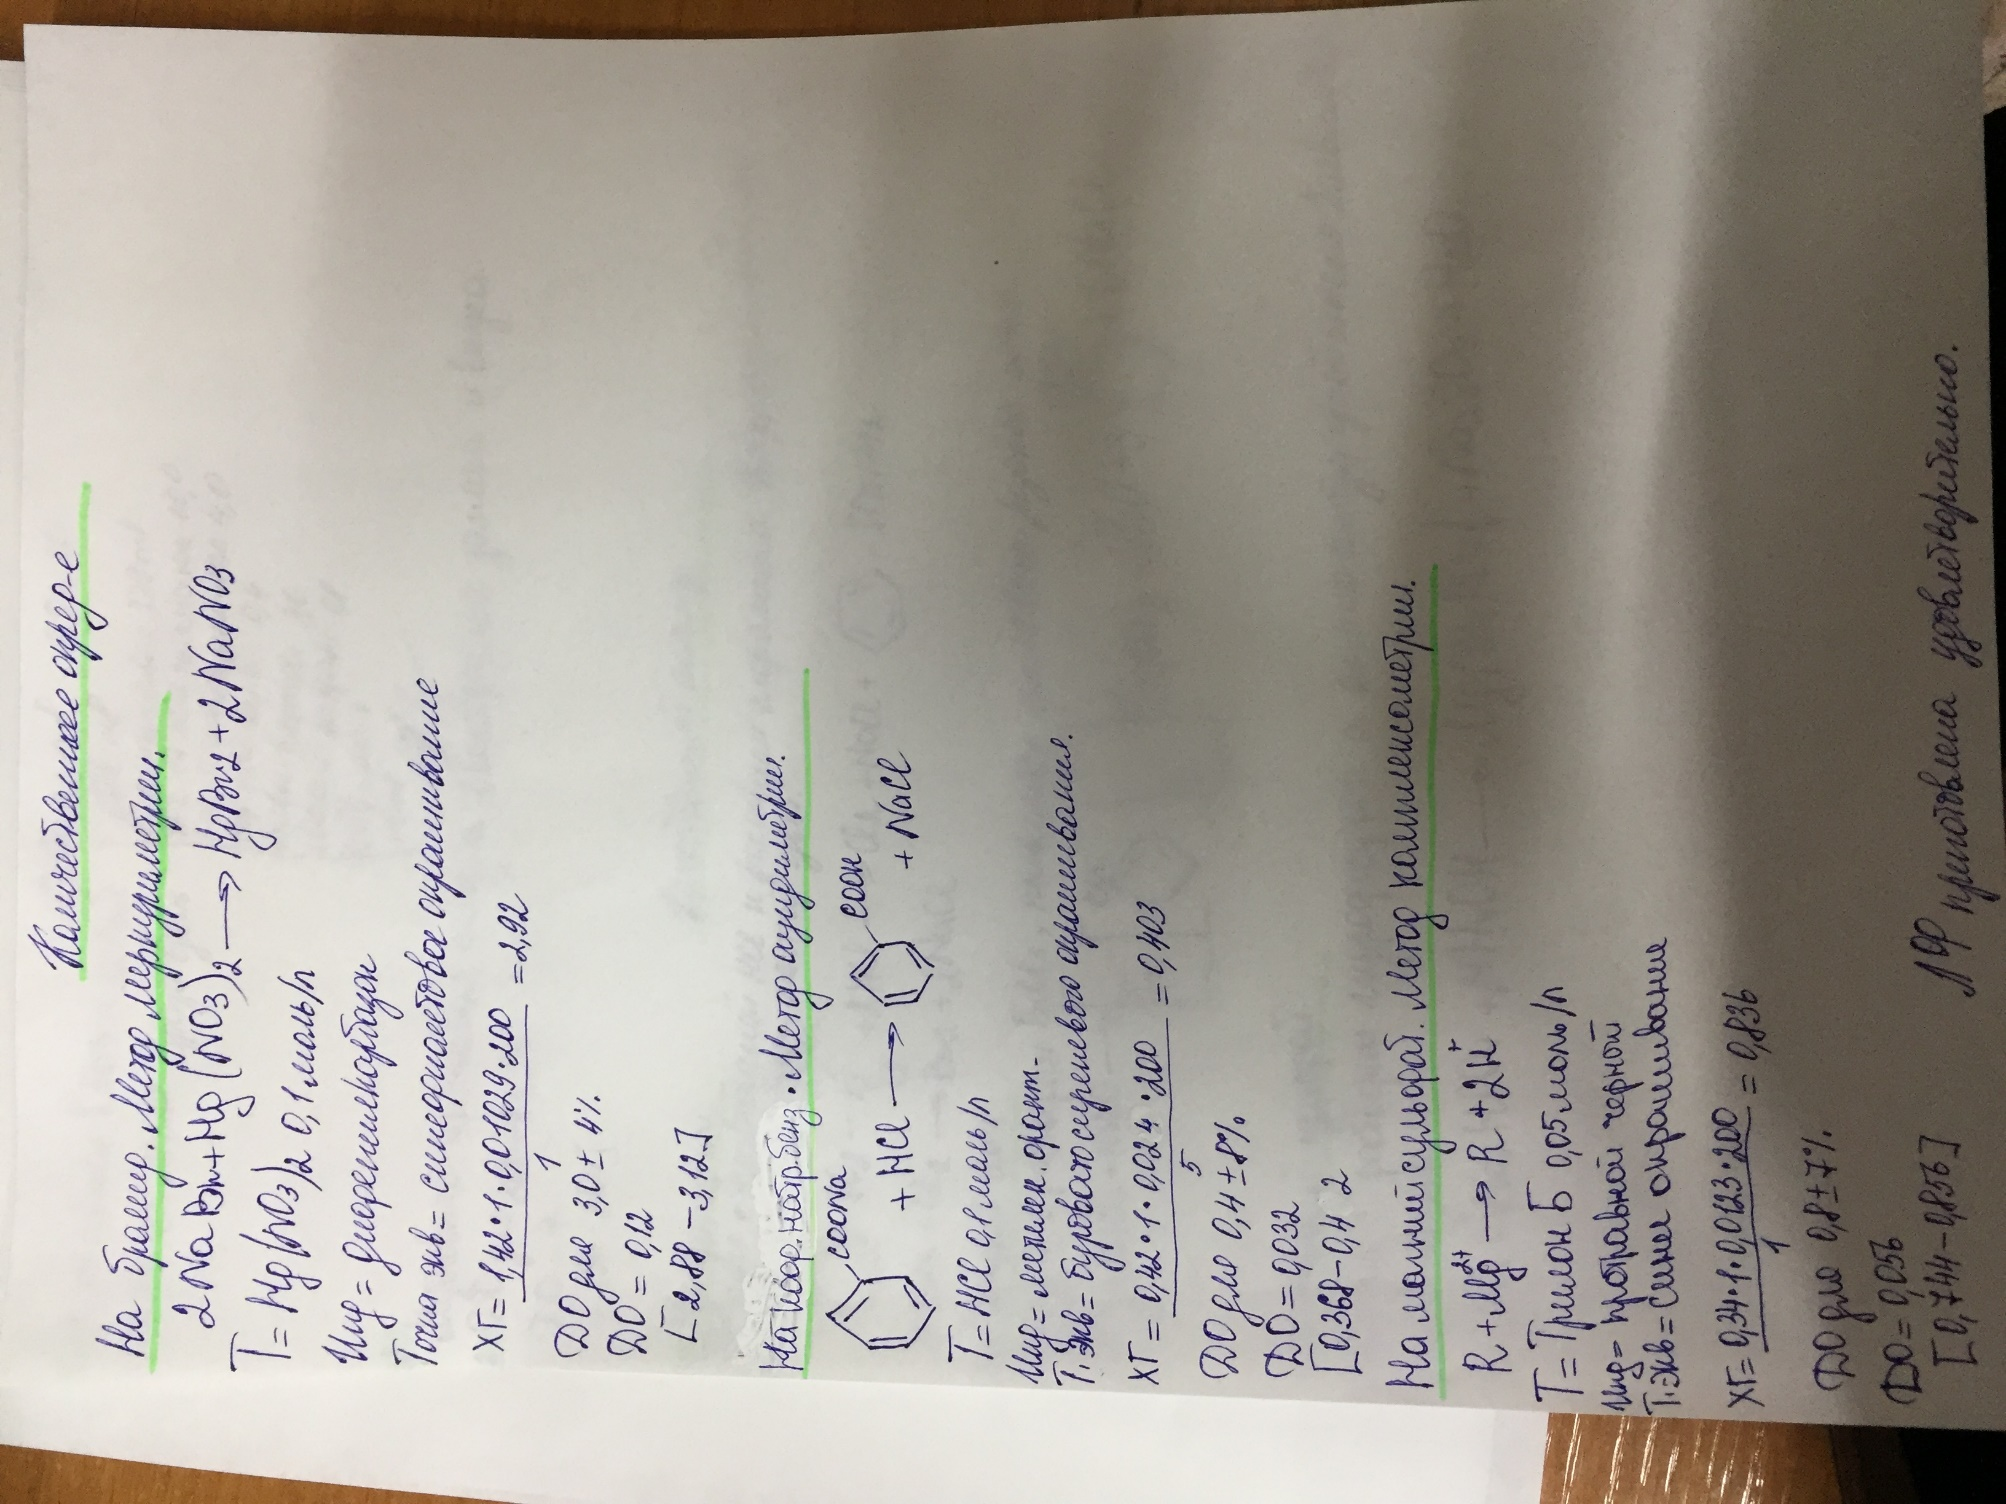 Количественное опред-е
На бромид. Метод меркуриметрии.
2NaBr + Hg(NO3)2 → HgBr2 + 2NaNO3
T = Hg(NO3)2 0,1 моль/л
Инд = дифенилкарбазон
Точка экв = синефиолетовое окрашивание
ХГ = 1,42·1·0,01029·200 / 1 = 2,92
DO для 3,0 ± 4%
DO = 0,12
[2,88 - 3,12]
На кофр.натр.бенз. Метод ацидиметрии.
COONa + HCl → COOH + NaCl
T = HCl 0,1 моль/л
Инд = метилен. оранж.
Т.экв = буроватосиреневого окрашивания.
ХГ = 0,42·1·0,024·200 / 5 = 0,403
DO для 0,4 ± 8%
DO = 0,032
[0,368 - 0,4 2
На магний сульфат. Метод комплексометрии.
R + Mg2+ → R + 2H+
T = Трилон Б 0,05 моль/л
Инд = протравной черной
Т.экв = синее окрашивание
ХГ = 0,34·1·0,0123·200 / 1 = 0,836
DO для 0,8 ± 7%
DO = 0,056
[0,744 - 0,856]
ЛФ приготовлена удовлетворительно.